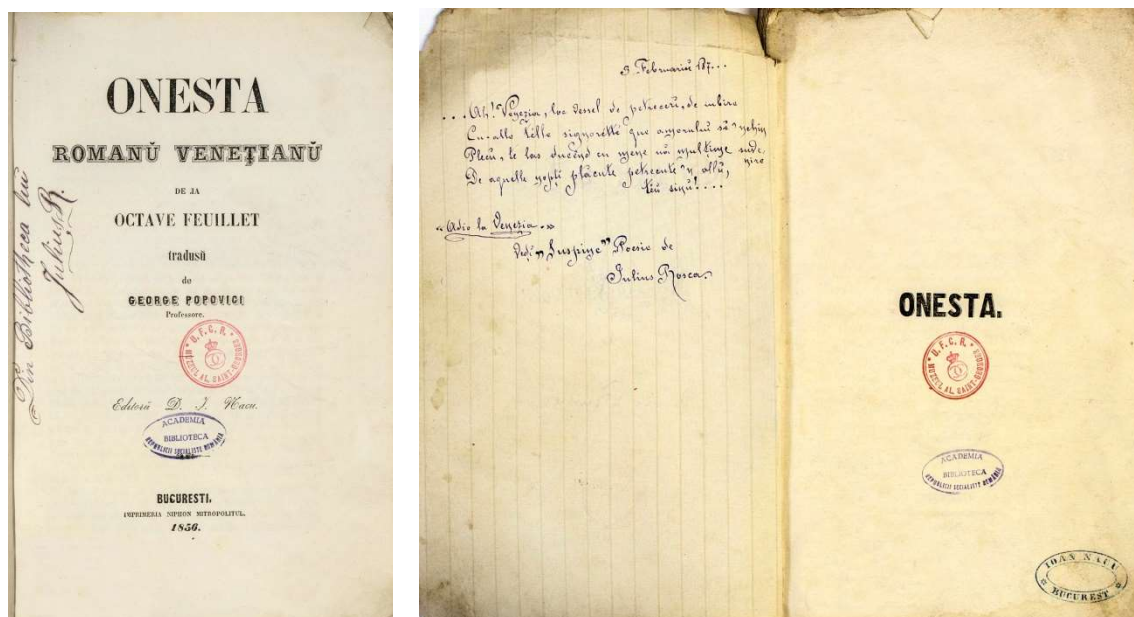 ONESTA
ROMANŬ VENEŢIANŬ
DE JA
OCTAVE FEUILLET
tradusŭ
de
GEORGE POPOVICI
Professore.
U.F.C.R.
MUZEUL AL. SAINT-GEORGES
Editorŭ D. J. Nacu.
ACADEMIA
BIBLIOTECA
REPUBLICII SOCIALISTE ROMÂNIA
BUCURESTI.
IMPRIMERIA NIPHON MITROPOLITUL.
1856.
Din Bibliotheca lui
Julius R.
3 Februariŭ 187...
...Ah! Venezia, loc vessel de petreceri, de iubire
Cu alle telle signorette que amorului
Plecu, te las ducênd cu mene uă mulţime
De aquelle nopţi plăcute petrecute 'n allŭ,
tĕu sinŭ!....
«Adio la Venezia.»
Vedi "Suspine" Poesie de
Julius Rosca
ONESTA.
U.F.C.R.
MUZEUL AL. SAINT-GEORGES
ACADEMIA
BIBLIOTECA
REPUBLICII SOCIALISTE ROMÂNIA
IOAN NACU
BUCUREST